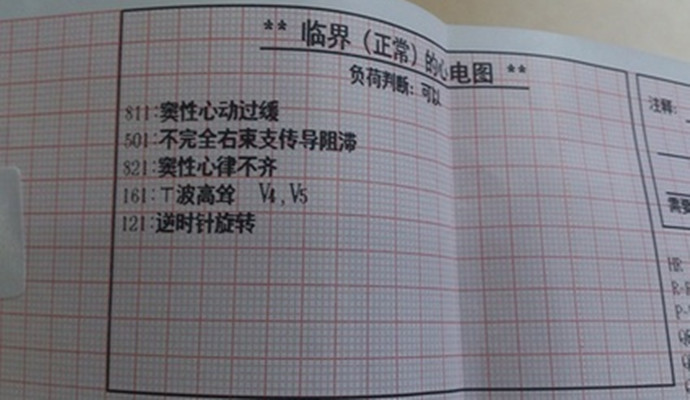 ** 临界（正常）的心电图 **
负荷判断：可以
811:窦性心动过缓
501:不完全右束支传导阻滞
821:窦性心律不齐
161:T波高耸 V4,V5
121:逆时针旋转
注释:
需要
HR
R-R
P-